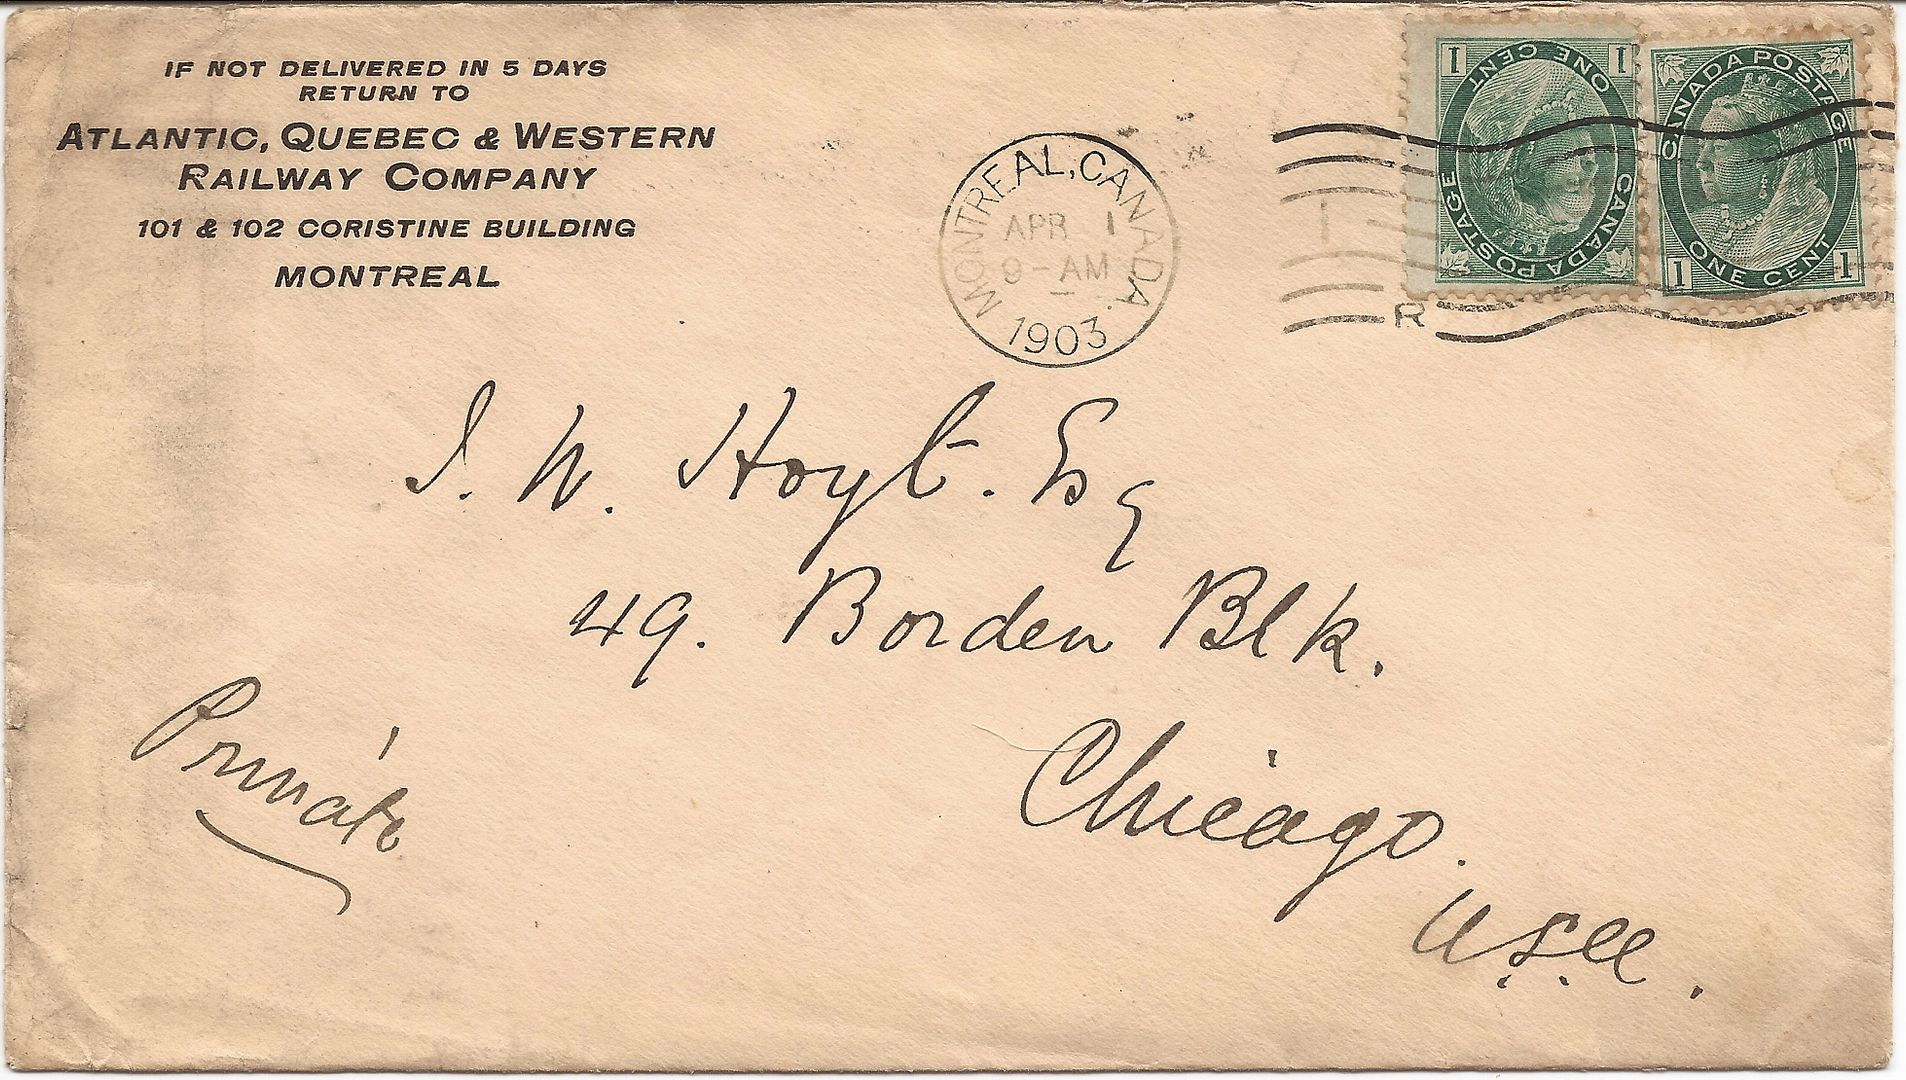 IF NOT DELIVERED IN 5 DAYS
RETURN TO
ATLANTIC, QUEBEC & WESTERN
RAILWAY COMPANY
101 & 102 CORISTINE BUILDING
MONTREAL
MONTREAL, CANADA.
APR 1
9-AM
1903
R
1 ONE CENT 1
CANADA POSTAGE
CANADA POSTAGE
1 ONE CENT 1
J. W. Hoyt. Esq
49. Borden Blk.
Chicago.
U.S.A.
Private